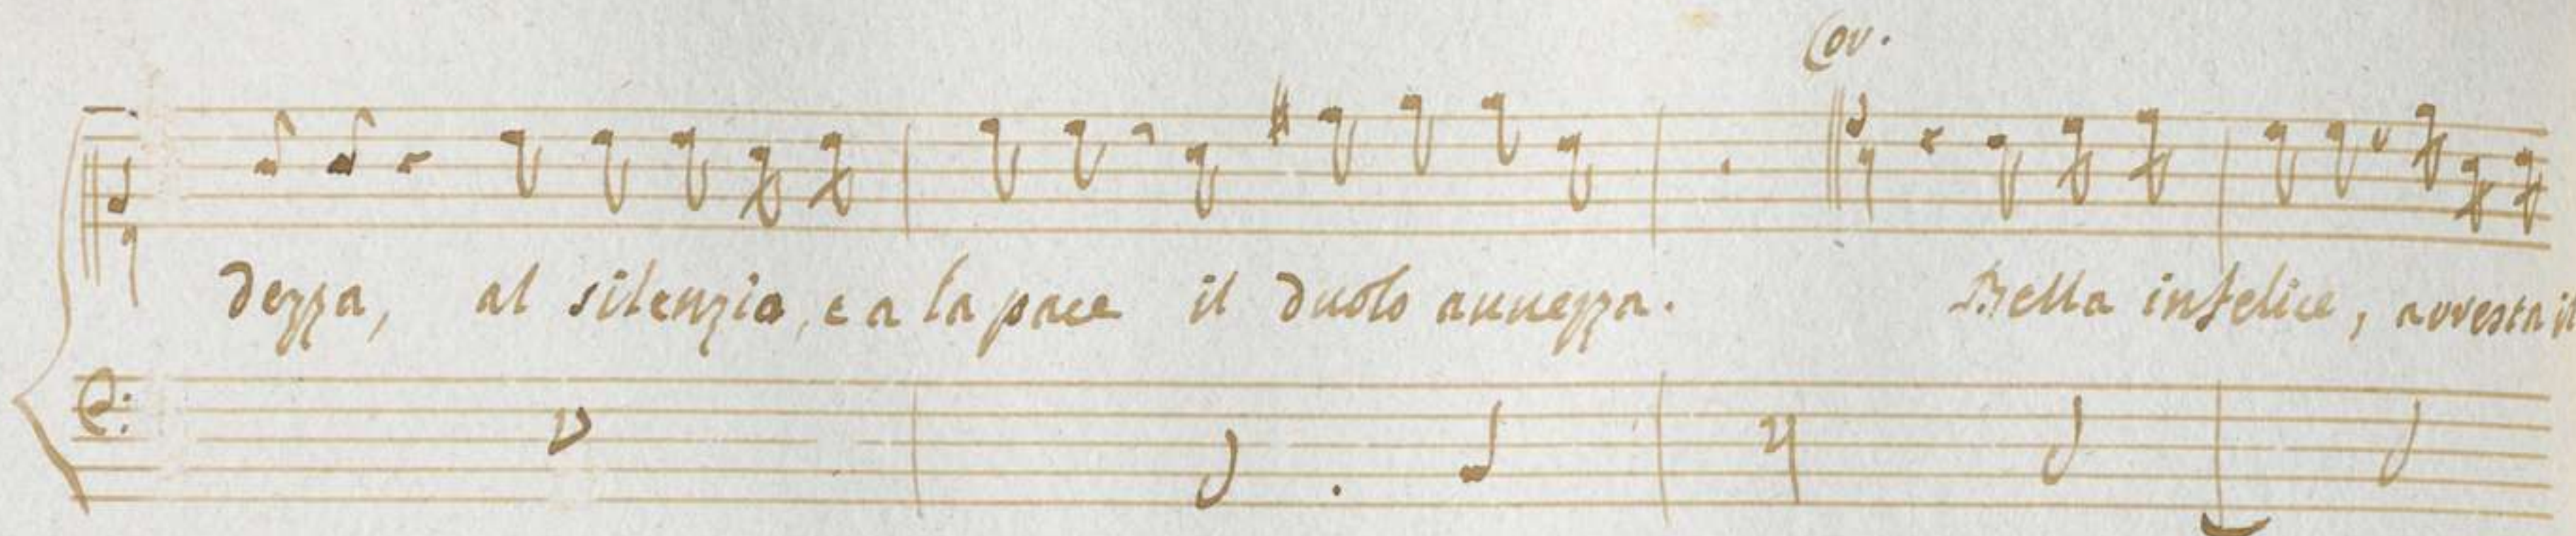 Cov.
dezza, al silenzio, e a la pace il duolo auuezza. Bella infelice, avresta il